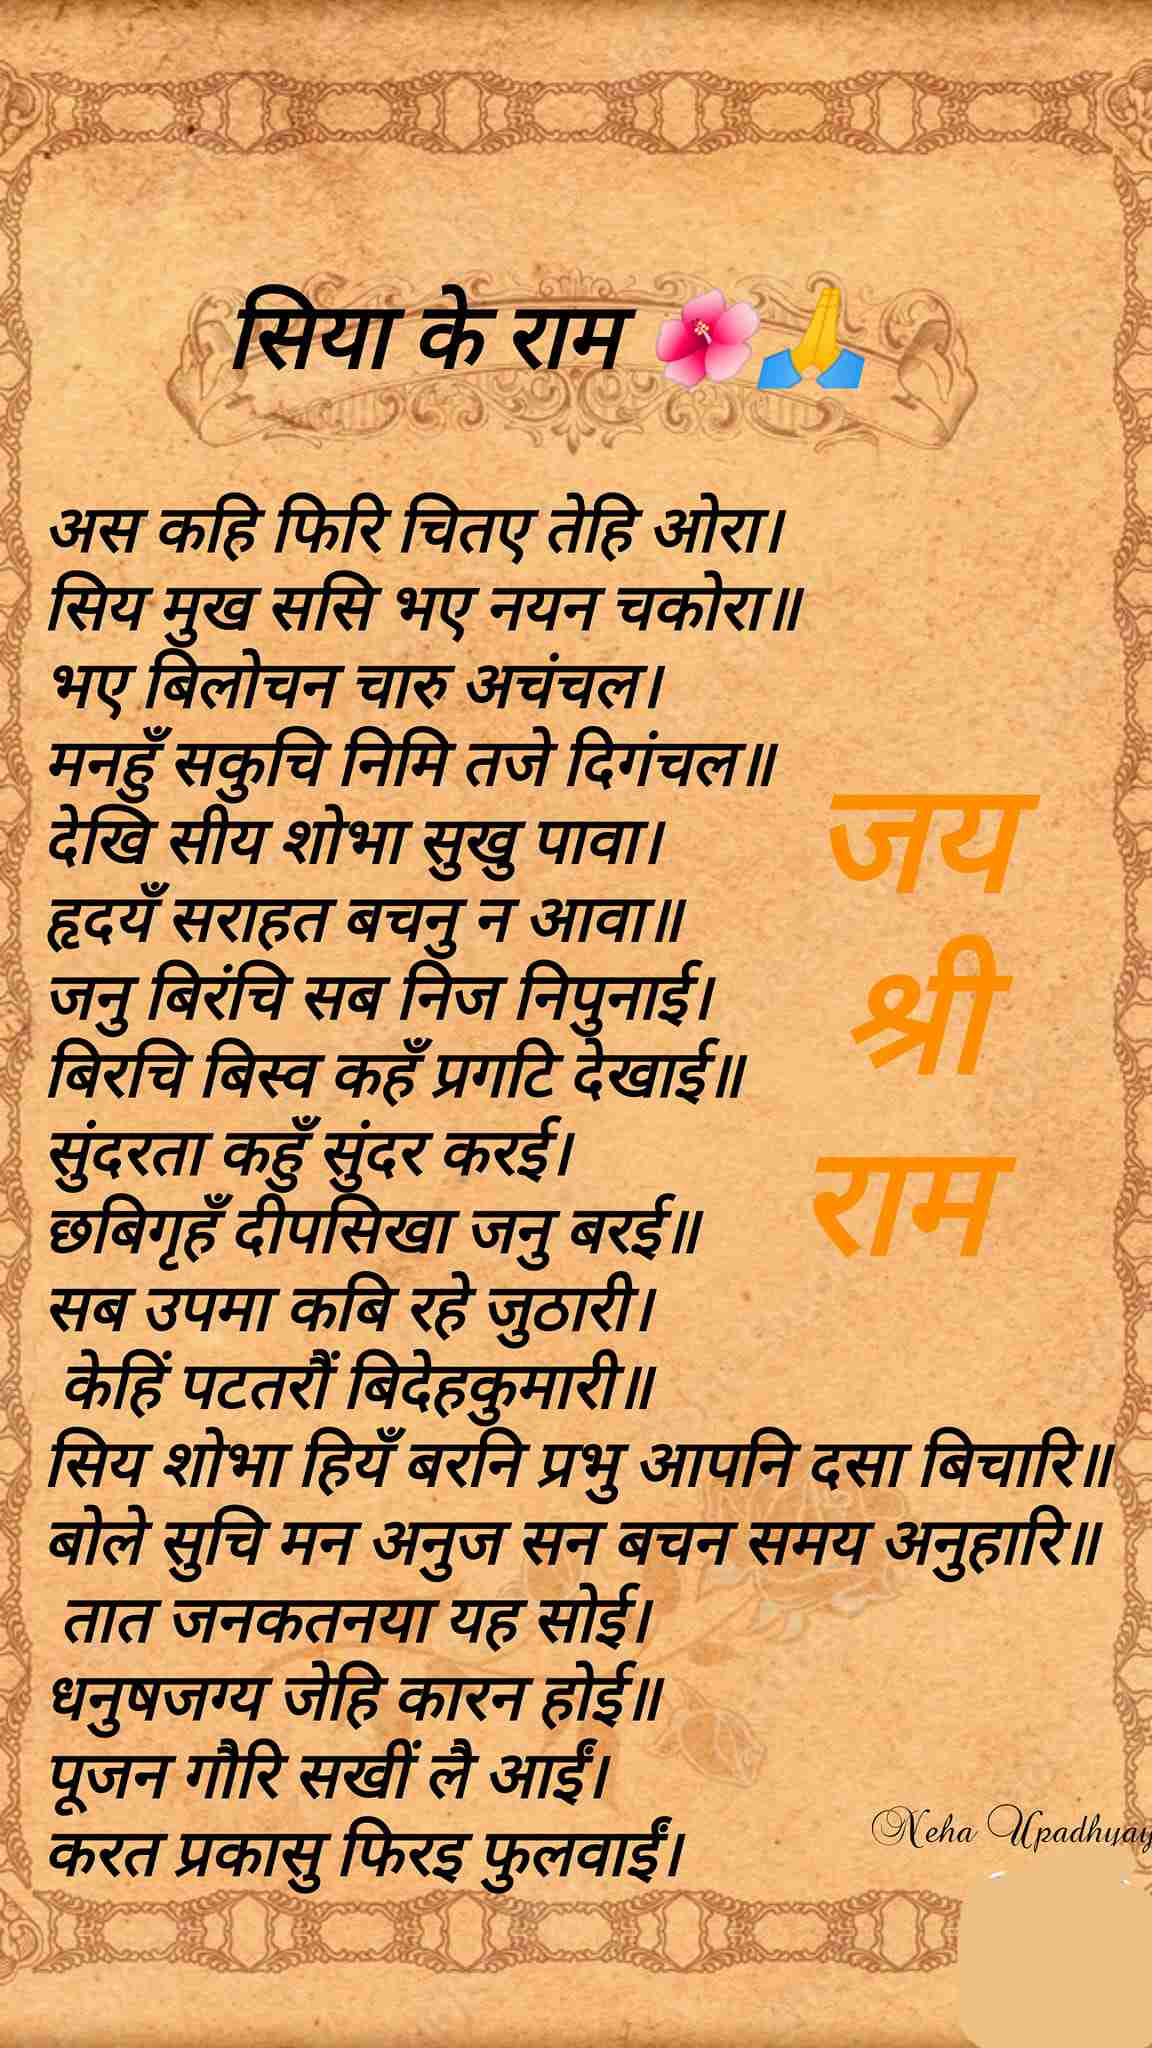 सिया के राम 🌺🙏
अस कहि फिरि चितए तेहि ओरा।
सिय मुख ससि भए नयन चकोरा॥
भए बिलोचन चारु अचंचल।
मनहुँ सकुचि निमि तजे दिगंचल॥
देखि सीय शोभा सुखु पावा।
हृदयँ सराहत बचनु न आवा॥
जनु बिरंचि सब निज निपुनाई।
बिरचि बिस्व कहँ प्रगटि देखाई॥
सुंदरता कहुँ सुंदर करई।
छबिगृहँ दीपसिखा जनु बरई॥
सब उपमा कबि रहे जुठारी।
केहिं पटतरौं बिदेहकुमारी॥
सिय शोभा हियँ बरनि प्रभु आपनि दसा बिचारि॥
बोले सुचि मन अनुज सन बचन समय अनुहारि॥
तात जनकतनया यह सोई।
धनुषजग्य जेहि कारन होई॥
पूजन गौरि सखीं लै आईं।
करत प्रकासु फिरइ फुलवाईं।
जय
श्री
राम
Neha Upadhyay